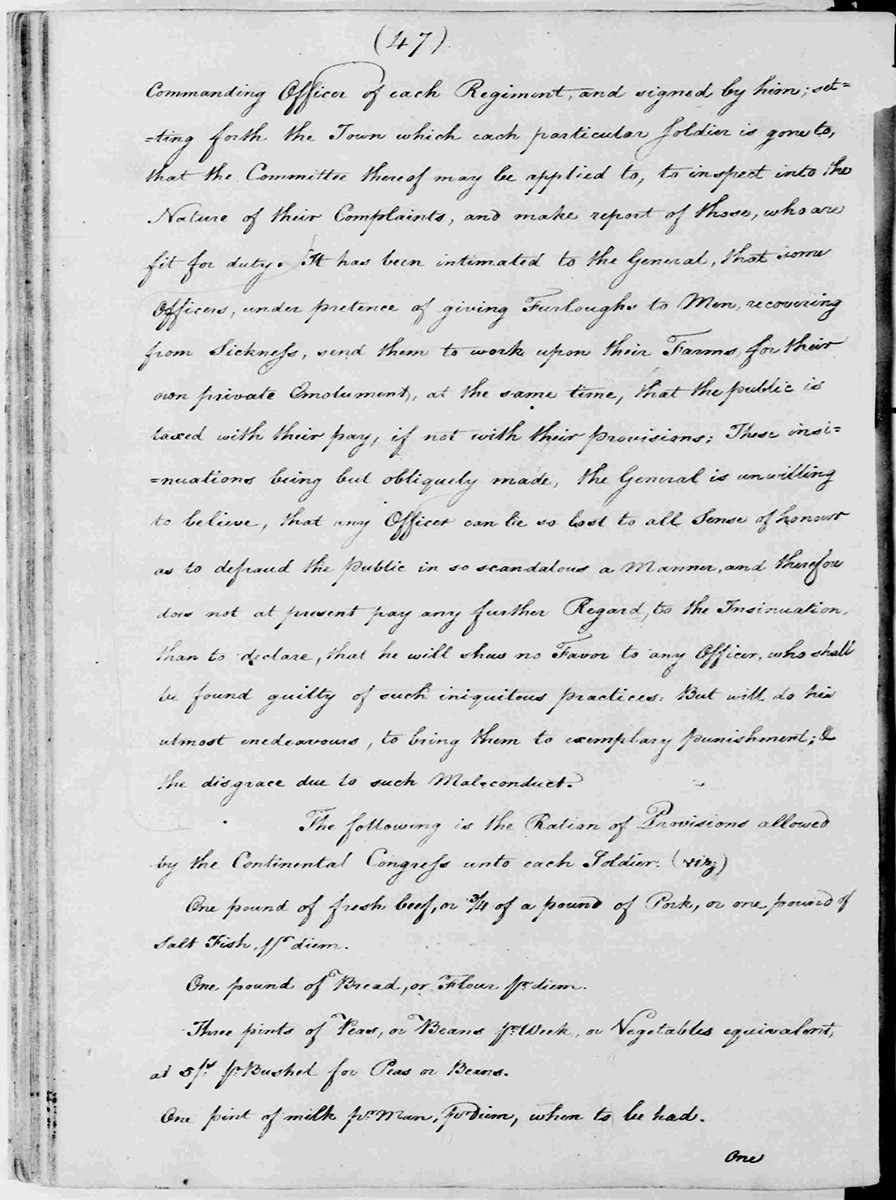 (47)
Commanding Officer of each Regiment, and signed by him; set=
=ting forth the Town which each particular Soldier is gone to,
that the Committee thereof may be applied to, to inspect into the
Nature of their Complaints, and make report of those, who are
fit for duty. It has been intimated to the General, that some
Officers, under pretence of giving Furloughs to Men, recovering
from Sickness, send them to work upon their Farms, for their
own private Emolument, at the same time, that the public is
taxed with their pay, if not with their provisions; These insi=
=nuations being but obliquely made, the General is unwilling
to believe, that any Officer can be so lost to all Sense of honour
as to defraud the public in so scandalous a Manner, and therefore
does not at present pay any further Regard, to the Insinuation,
than to declare, that he will shew no Favor to any Officer, who shall
be found guilty of such iniquitous practices: But will do his
utmost endeavours, to bring them to exemplary punishment; &
the disgrace due to such Mal-conduct.
The following is the Ration of Provisions allowed
by the Continental Congress unto each Soldier. (viz)
One pound of fresh beef, or 3/4 of a pound of Pork, or one pound of
Salt Fish, pr diem.
One pound of Bread, or Flour pr diem.
Three pints of Peas, or Beans pr Week, or Vegetables equivalent,
at 5/s pr Bushel for Peas or Beans.
One pint of milk pr Man, pr Diem, when to be had.
One